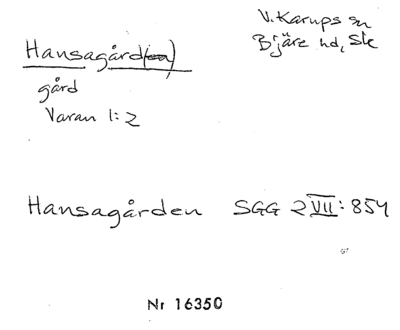 V. Karups sn
Bjäre hd, Sk
Hansagård(en)
gård
Varan 1:2
Hansagården SGG 2 VII: 854
Nr 16350